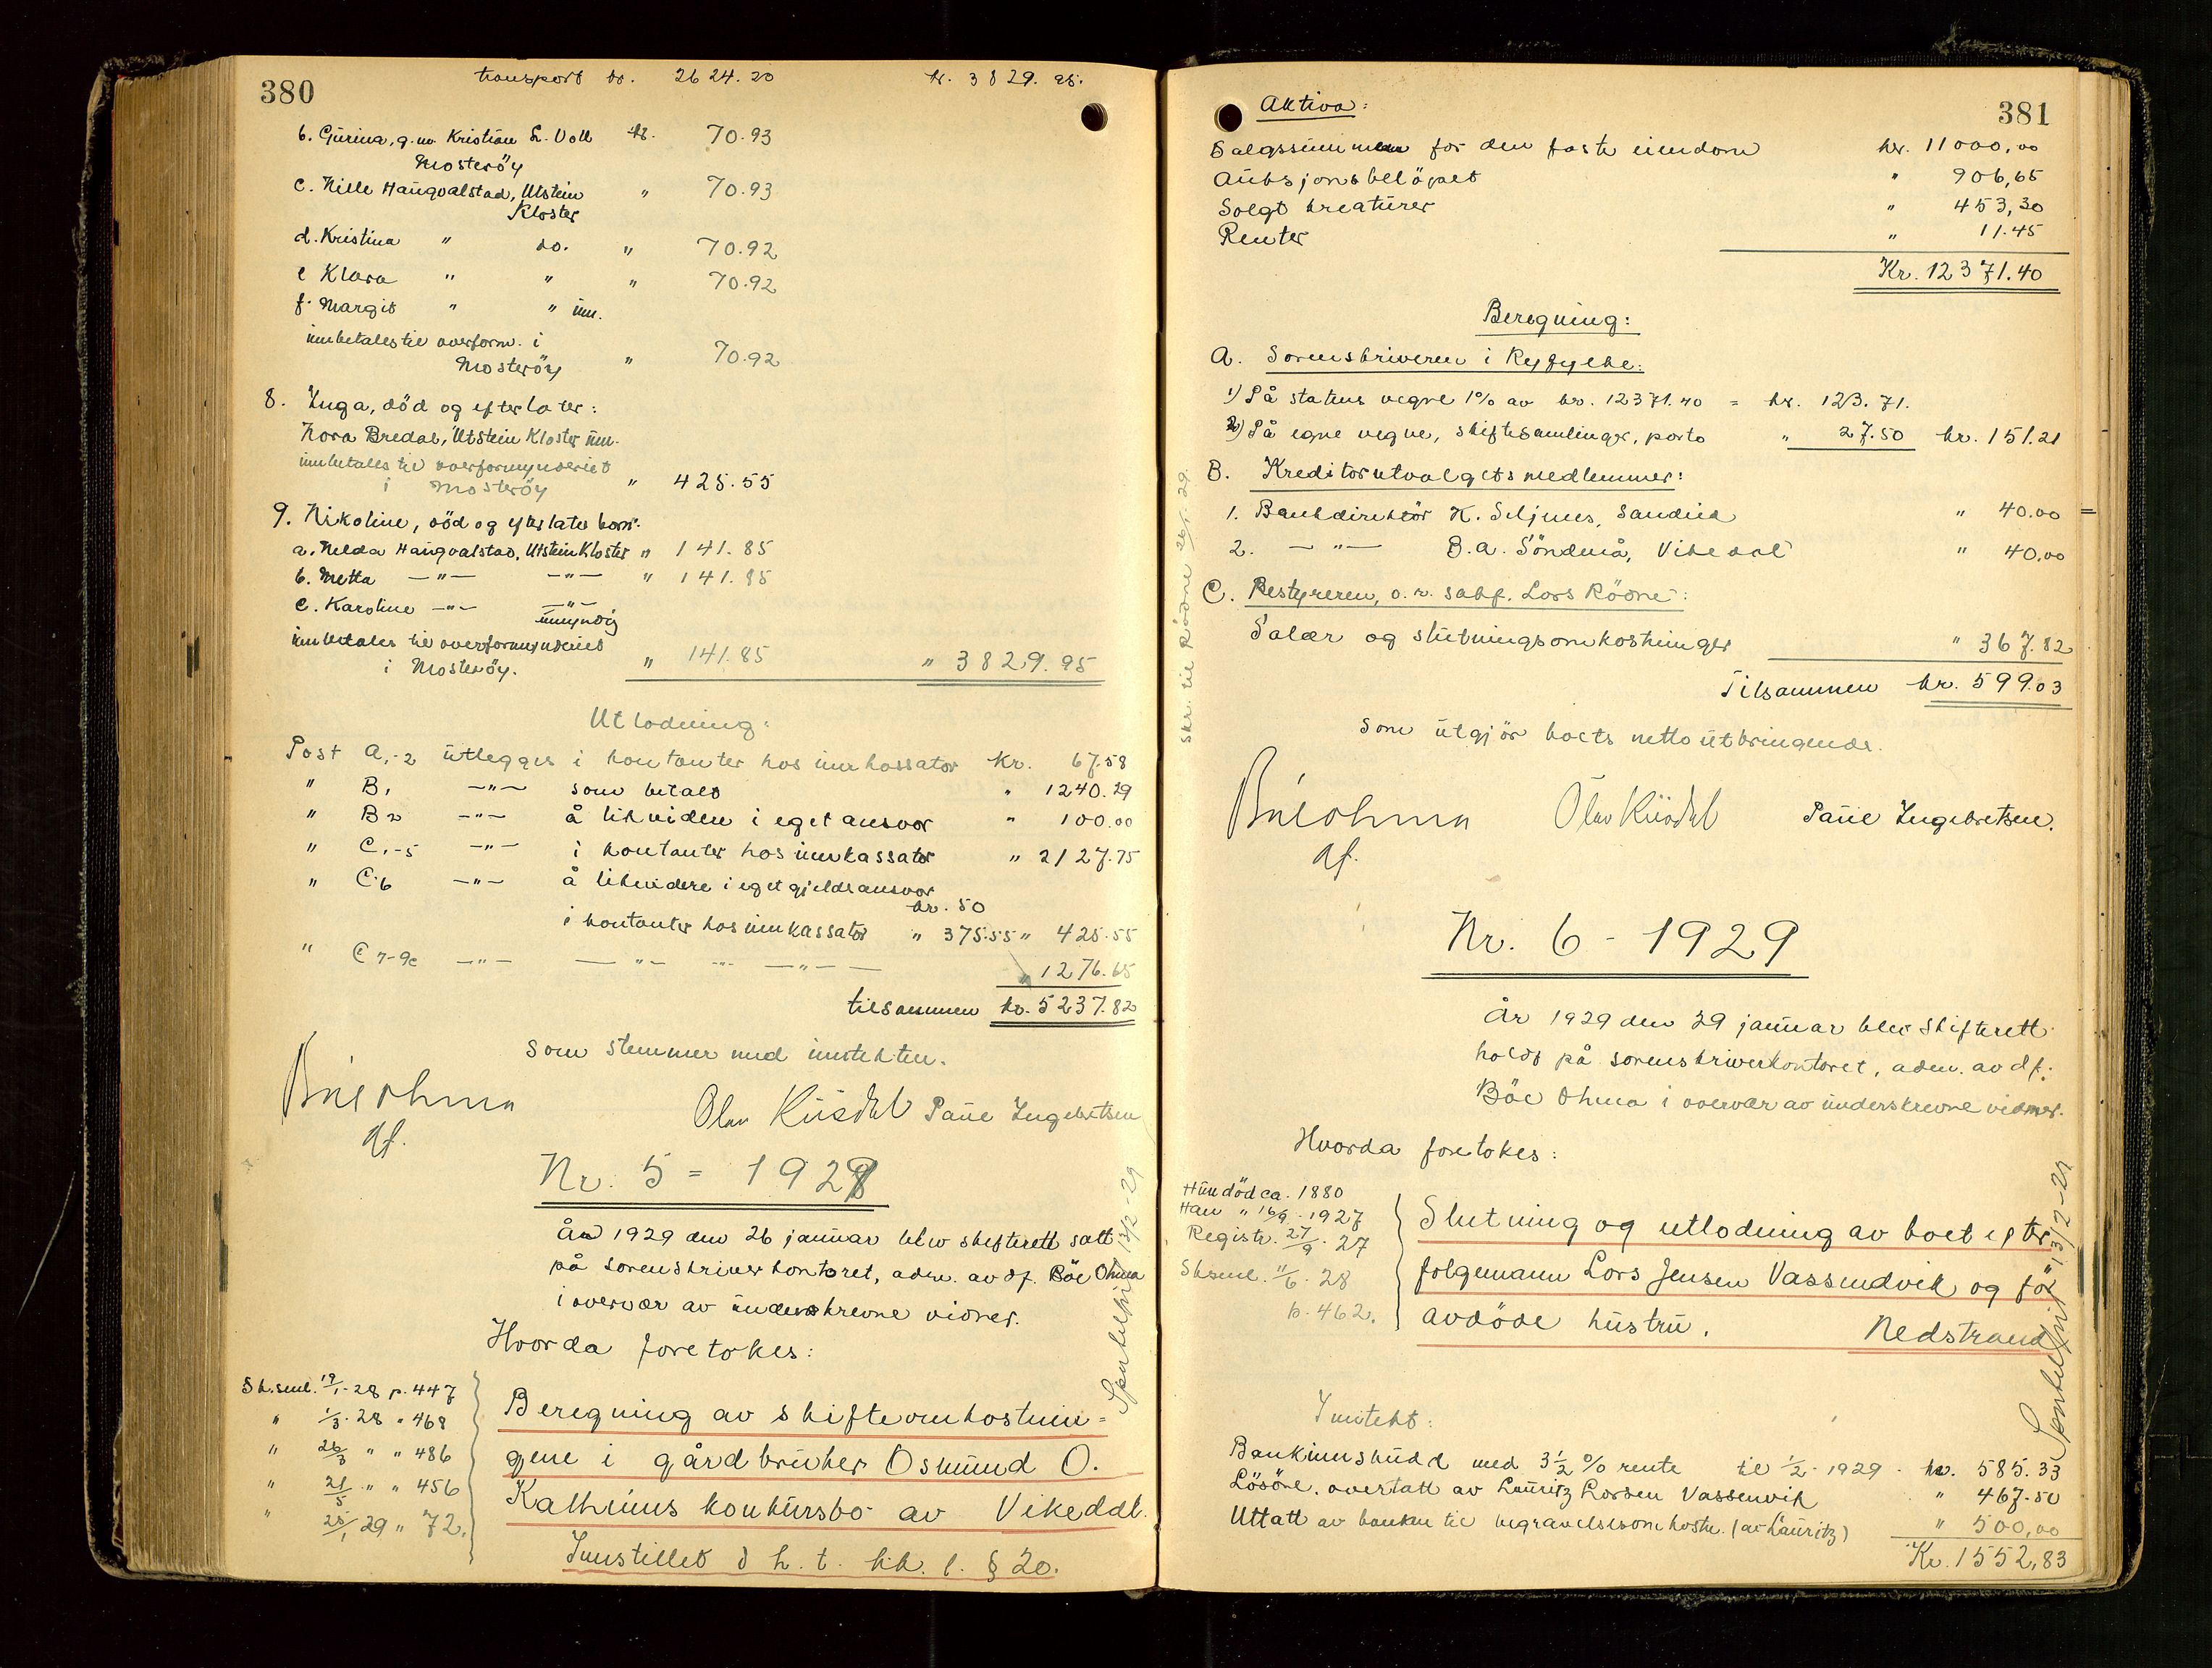 380
transport kr. 2624.20 kr. 3829.95.
b. Gurina, g.m. Kristian L. Voll kr. 70.93
Mosteröy
c. Nille Haugvalstad, Utstein " 70.93
Kloster
d. Kristina " do. " 70.92
e Klara " " " 70.92
f. Margit " " um.
innbetales til overform. i
Mosteröy " 70.92
8. Inga, död og efterlater:
Nora Bredal, Utstein Kloster um.
innbetales til overformynderiet
i Mosteröy " 425.55
9. Nikoline, död og efterlater barn:
a. Nelda Haugvalstad, Utstein Kloster " 141.85
b. Metta —"— —"— " 141.85
c. Karoline —"— —"—
umyndig
innbetales til overformynderiet
i Mosteröy. " 141.85 " 3829.95
Utlodning:
Post A,-2 utlegges i kontanter hos innkassator Kr. 67.58
" B1 —"— som betalt " 1240.29
" B2 —"— å likvidere i eget ansvar " 100.00
" C1-5 —"— i kontanter hos innkassator " 2127.75
" C.6 —"— å likvidere i eget gjeldsansvar
kr. 50
i kontanter hos innkassator " 375.55 " 425.55
" C7-9c —"— —"— —"— —"— " 1276.65
tilsammen kr. 5237.82
som stemmer med inntekten.
Böe Ohma
df.
Olav Riisdal Paüe Ingebretsen
Nr. 5 = 1929
År 1929 den 26 januar blev skifterett satt
på sorenskriverkontoret, adm. av df. Böe Ohma
i overvær av underskrevne vidner.
Hvorda foretokes:
Sk.sml. 19/1-28 p. 447
" 1/3-28 " 468
" 26/3 " " 486
" 21/5 " " 456
" 25/1 29 " 72.
Beregning av skifteomkostnin=
gene i gårdbruker Osmund O.
Kalhuus konkursbo av Vikedal.
Innstillet i h. t. kk. l. § 20.
13/2-29
381
Aktiva:
Salgssummen for den faste eiendom kr. 11000,00
Auksjonsbelöpet " 906,65
Solgt kreaturer " 453,30
Renter " 11.45
Kr. 12371.40
Beregning:
A. Sorenskriveren i Ryfylke:
1) På statens vegne 1% av kr. 12371.40 = kr. 123.71.
2) På egne vegne, skiftesamlinger, porto " 27.50 kr. 151.21
B. Kreditorutvalgets medlemmer:
1. Bankdirektör K. Seljnes, Sandeid " 40.00
2. —"— B.A. Söndenå, Vikedal " 40.00
C. Bestyreren, o.r. sakf. Lars Rödne:
Salær og slutningsomkostninger " 367.82
Tilsammen kr. 599.03
som utgjör boets netto utbringende.
skr. til Rödne 26/1-29.
Böe Ohma
df.
Olav Riisdal Paüe Ingebretsen.
Nr. 6 - 1929
År 1929 den 29 januar blev skifterett
holdt på sorenskriverkontoret, adm. av df.
Böe Ohma i overvær av underskrevne vidner.
Hvorda foretokes:
Hun död ca. 1880
Han " 16/9-1927
Registr. 27/9-27
Sk.sml. 11/6-28
p. 462.
Slutning og utlodning av boet efter
folgemann Lars Jensen Vassendvik og för
avdöde hustru. Nedstrand
13/2-29
Inntekt:
Bankinnskudd med 3½ % rente til 1/2-1929 kr. 585.33
Lösöre, overtatt av Lauritz Larsen Vassenvik " 467.50
Uttatt av banken til begravelsesomkostn. (av Lauritz) " 500,00
Kr. 1552,83